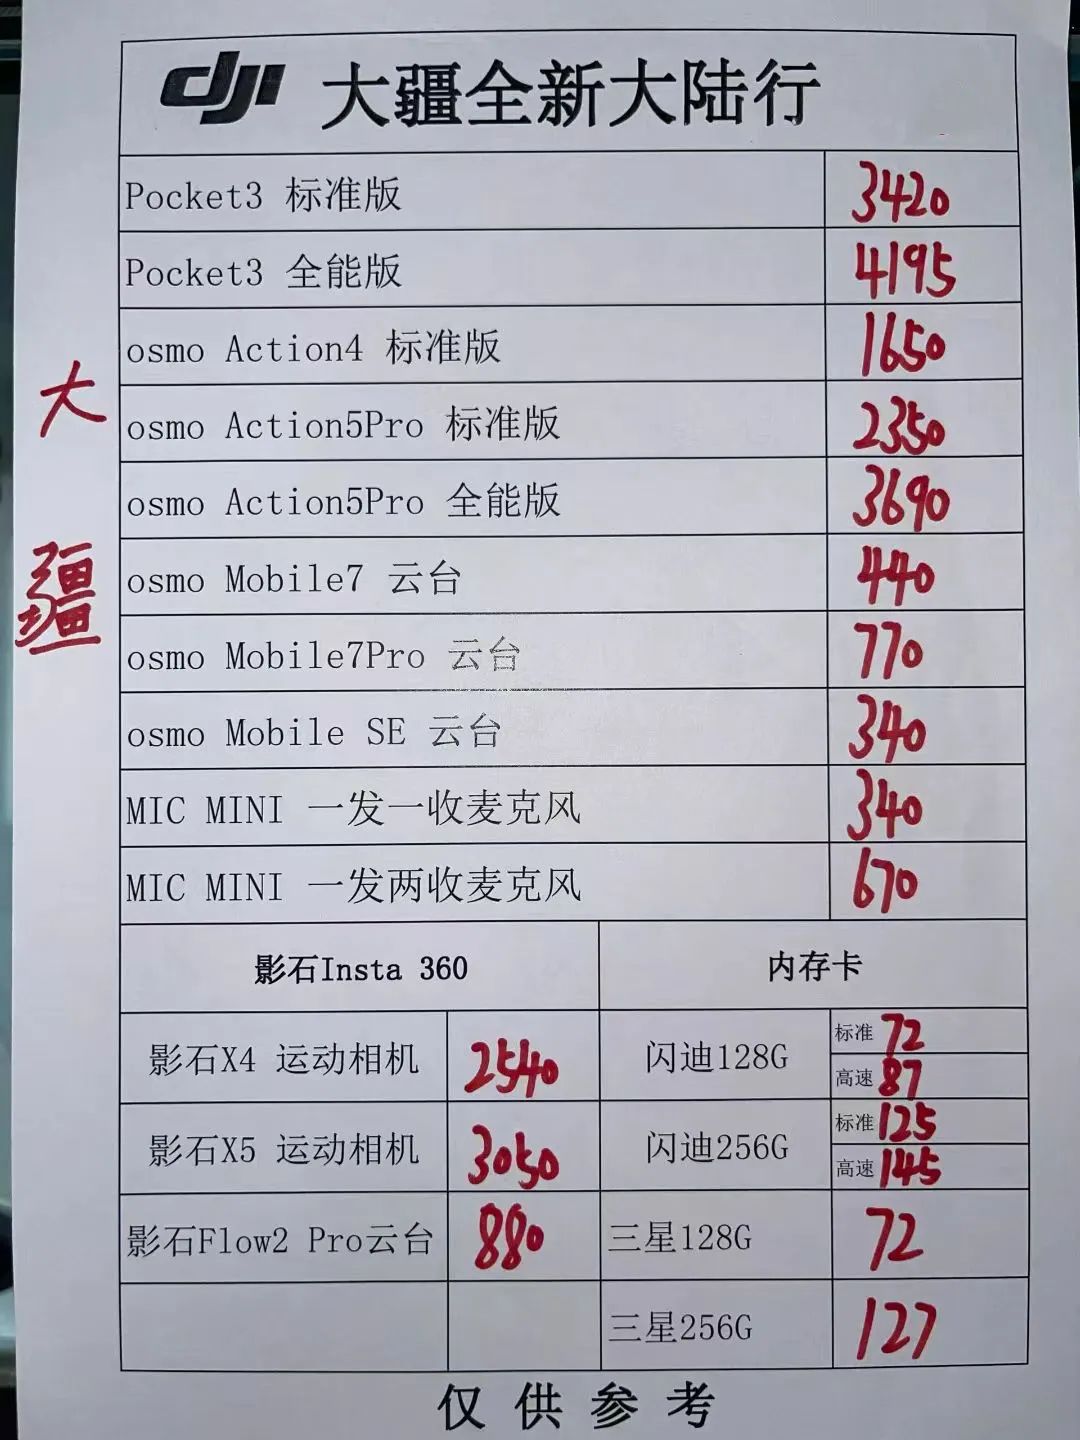 dji 大疆全新大陆行
Pocket3 标准版 3420
Pocket3 全能版 4195
osmo Action4 标准版 1650
osmo Action5Pro 标准版 2350
osmo Action5Pro 全能版 3690
osmo Mobile7 云台 440
osmo Mobile7Pro 云台 770
osmo Mobile SE 云台 340
MIC MINI 一发一收麦克风 340
MIC MINI 一发两收麦克风 670
大疆
影石Insta 360 内存卡
影石X4 运动相机 2540 闪迪128G 标准 72
高速 87
影石X5 运动相机 3050 闪迪256G 标准 125
高速 145
影石Flow2 Pro云台 880 三星128G 72
三星256G 127
仅供参考